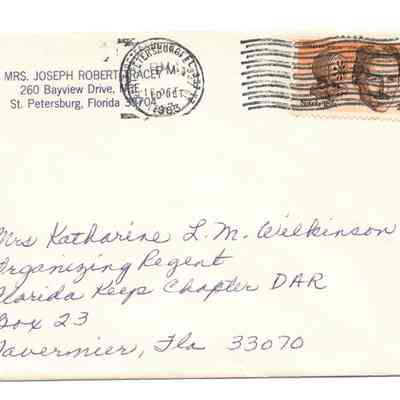 MRS. JOSEPH ROBERT TRACEY
260 Bayview Drive, NE
St. Petersburg, Florida 33704
ST PETERSBURG
PM
1983
Mrs Katharine L. M. Wilkinson
Organizing Regent
Florida Keys Chapter DAR
Box 23
Tavernier, Fla 33070